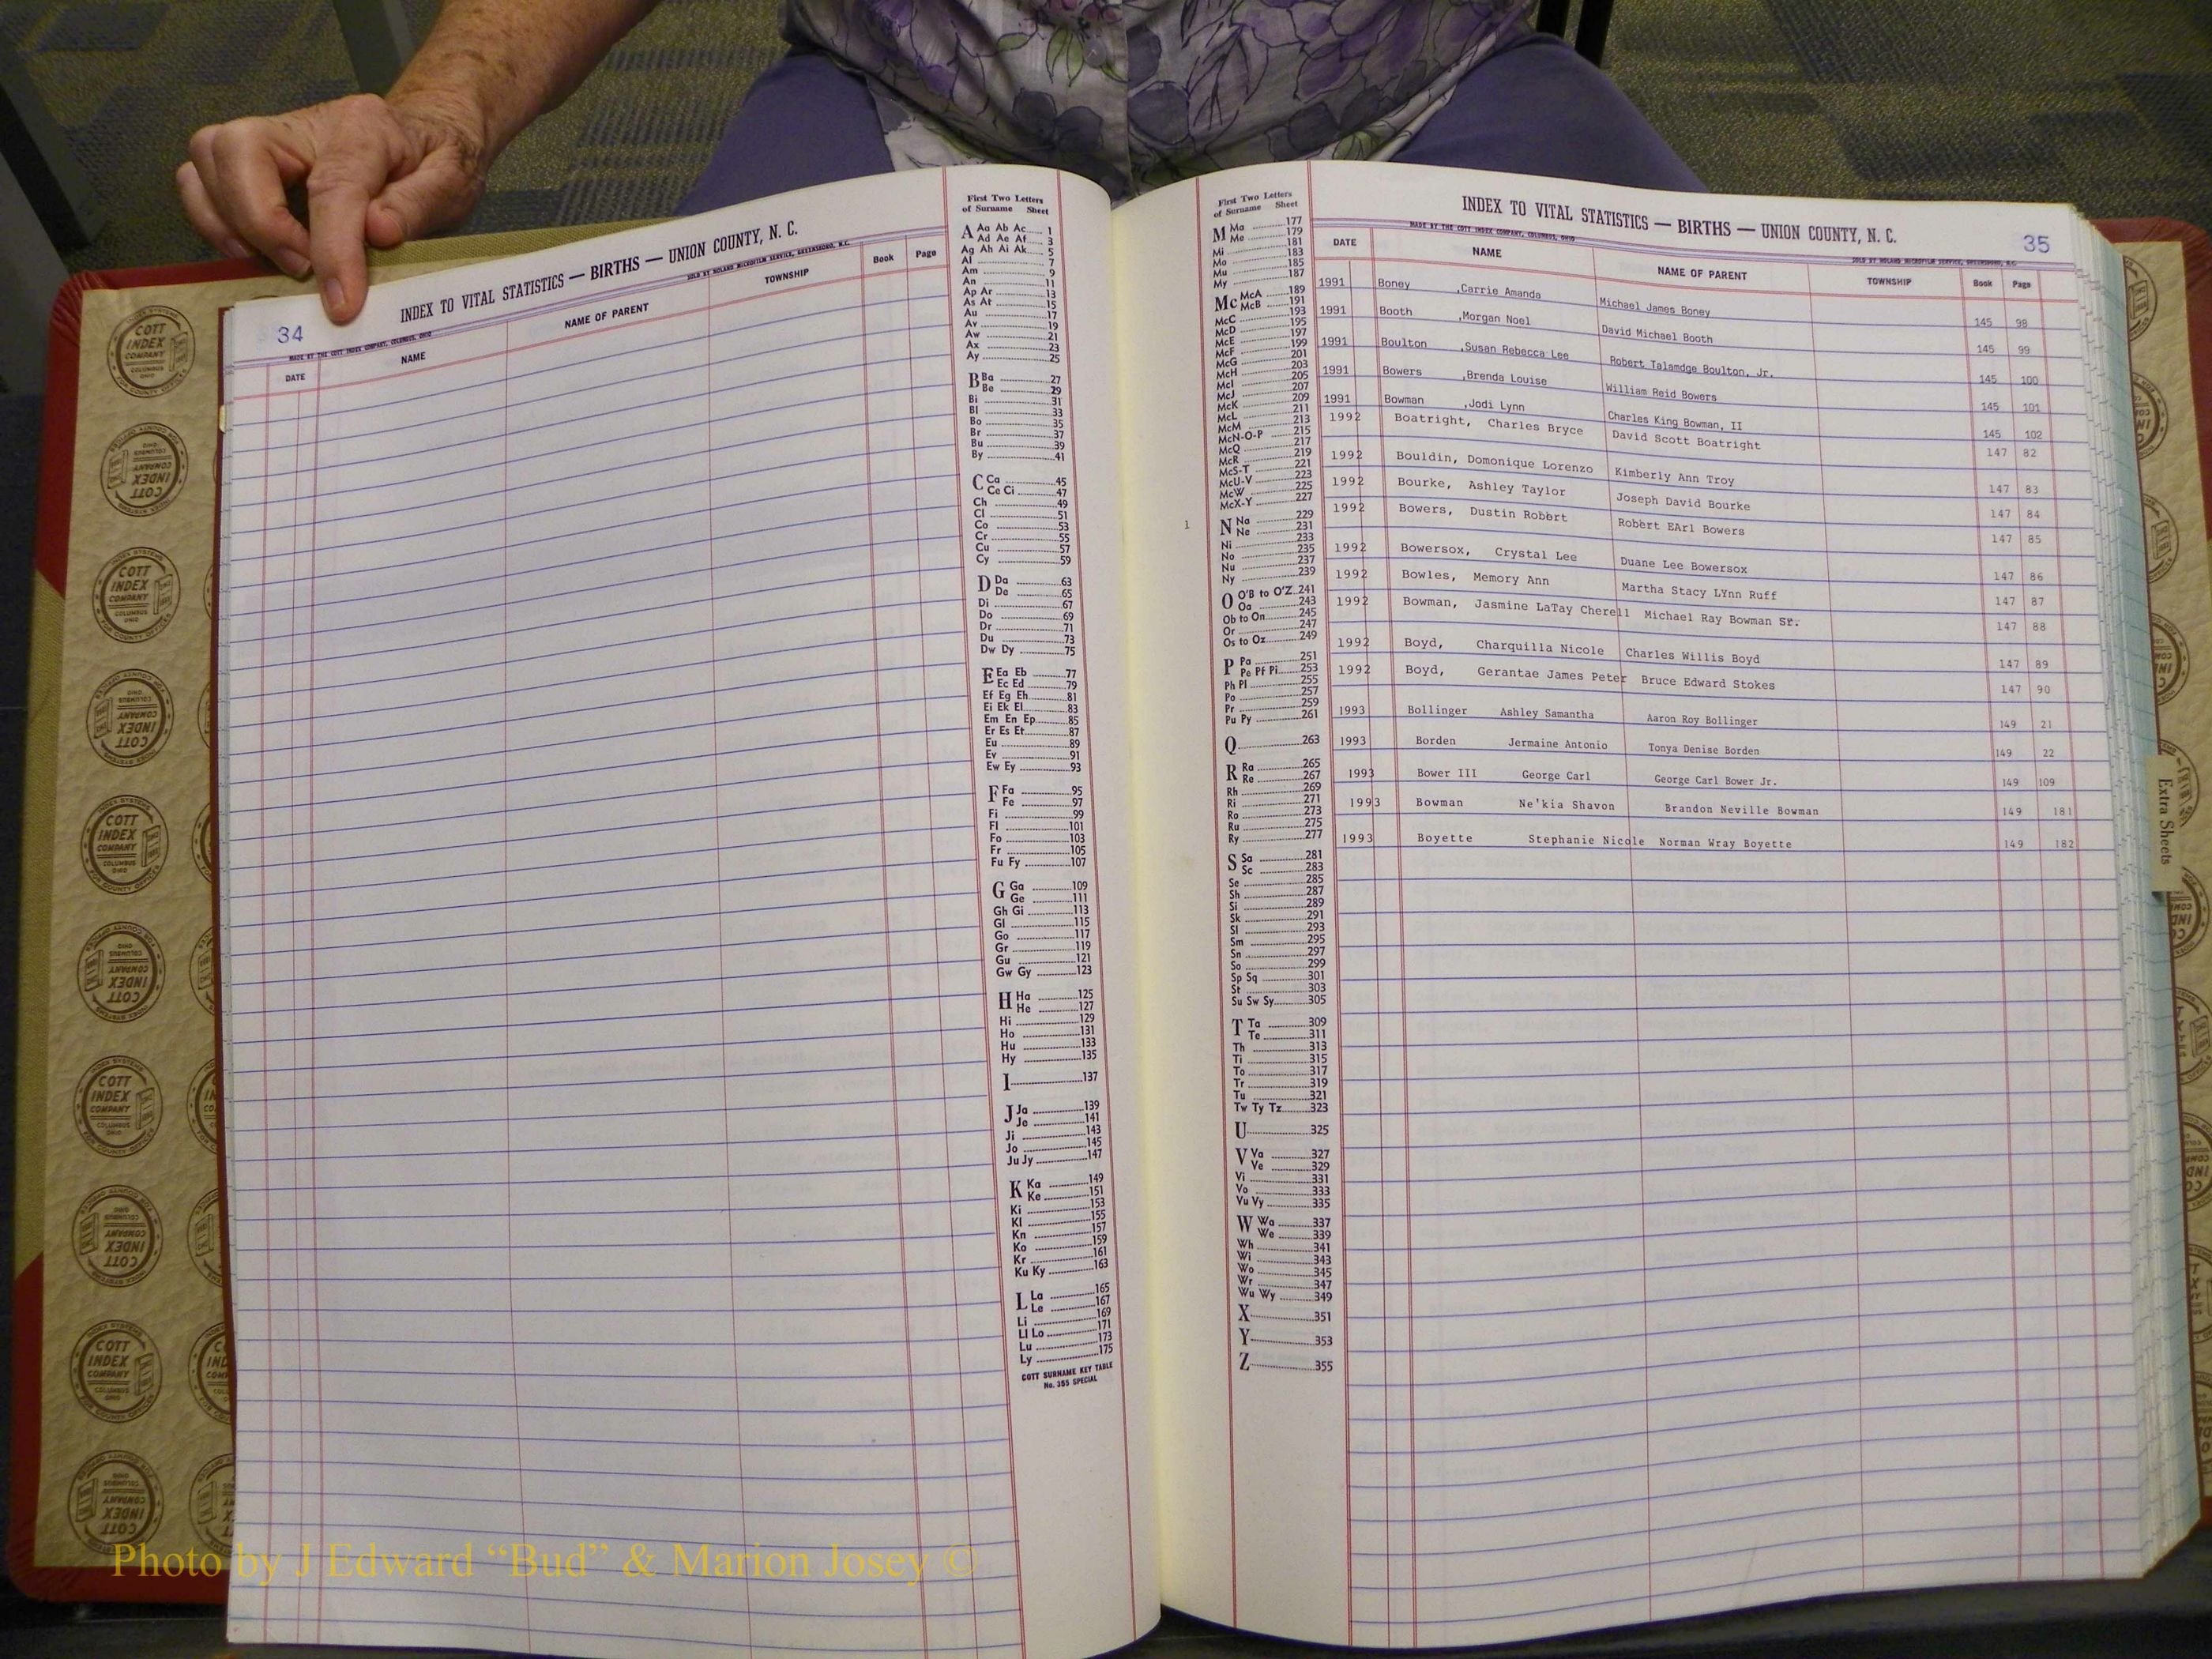 34
INDEX TO VITAL STATISTICS — BIRTHS — UNION COUNTY, N. C.
MADE BY THE COTT INDEX COMPANY, COLUMBUS, OHIO
SOLD BY ROLAND MICROFILM SERVICE, GREENSBORO, N.C.
DATE NAME NAME OF PARENT TOWNSHIP Book Page
First Two Letters
of Surname Sheet
A Aa Ab Ac 1
Ad Ae Af 3
Ag Ah Ai Ak 5
Al 7
Am 9
An 11
Ap Ar 13
As At 15
Au 17
Av 19
Aw 21
Ax 23
Ay 25
B Ba 27
Be 29
Bi 31
Bl 33
Bo 35
Br 37
Bu 39
By 41
C Ca 45
Ce Ci 47
Ch 49
Cl 51
Co 53
Cr 55
Cu 57
Cy 59
D Da 63
De 65
Di 67
Do 69
Dr 71
Du 73
Dw Dy 75
E Ea Eb 77
Ec Ed 79
Ef Eg Eh 81
Ei Ek El 83
Em En Ep 85
Er Es Et 87
Eu 89
Ev 91
Ew Ey 93
F Fa 95
Fe 97
Fi 99
Fl 101
Fo 103
Fr 105
Fu Fy 107
G Ga 109
Ge 111
Gh Gi 113
Gl 115
Go 117
Gr 119
Gu 121
Gw Gy 123
H Ha 125
He 127
Hi 129
Ho 131
Hu 133
Hy 135
I 137
J Ja 139
Je 141
Ji 143
Jo 145
Ju Jy 147
K Ka 149
Ke 151
Ki 153
Kl 155
Kn 157
Ko 159
Kr 161
Ku Ky 163
L La 165
Le 167
Li 169
Ll Lo 171
Lu 173
Ly 175
COTT SURNAME KEY TABLE
No. 355 SPECIAL
First Two Letters
of Surname Sheet
M Ma 177
Me 179
Mi 181
Mo 183
Mu 185
My 187
Mc McA 189
McB 191
McC 193
McD 195
McE 197
McF 199
McG 201
McH 203
McI 205
McJ 207
McK 209
McL 211
McM 213
McN-O-P 215
McQ 217
McR 219
McS-T 221
McU-V 223
McW 225
McX-Y 227
1
N Na 229
Ne 231
Ni 233
No 235
Nu 237
Ny 239
O O'B to O'Z 241
Oa 243
Ob to On 245
Or 247
Os to Oz 249
P Pa 251
Pe Pf Pi 253
Ph Pl 255
Po 257
Pr 259
Pu Py 261
Q 263
R Ra 265
Re 267
Rh 269
Ri 271
Ro 273
Ru 275
Ry 277
S Sa 281
Sc 283
Se 285
Sh 287
Si 289
Sk 291
Sl 293
Sm 295
Sn 297
So 299
Sp Sq 301
St 303
Su Sw Sy 305
T Ta 309
Te 311
Th 313
Ti 315
To 317
Tr 319
Tu 321
Tw Ty Tz 323
U 325
V Va 327
Ve 329
Vi 331
Vo 333
Vu Vy 335
W Wa 337
We 339
Wh 341
Wi 343
Wo 345
Wr 347
Wu Wy 349
X 351
Y 353
Z 355
INDEX TO VITAL STATISTICS — BIRTHS — UNION COUNTY, N. C.
35
MADE BY THE COTT INDEX COMPANY, COLUMBUS, OHIO
SOLD BY ROLAND MICROFILM SERVICE, GREENSBORO, N.C.
DATE NAME NAME OF PARENT TOWNSHIP Book Page
1991 Boney ,Carrie Amanda Michael James Boney 145 98
1991 Booth ,Morgan Noel David Michael Booth 145 99
1991 Boulton ,Susan Rebecca Lee Robert Talamdge Boulton, Jr. 145 100
1991 Bowers ,Brenda Louise William Reid Bowers 145 101
1991 Bowman ,Jodi Lynn Charles King Bowman, II 145 102
1992 Boatright, Charles Bryce David Scott Boatright 147 82
1992 Bouldin, Domonique Lorenzo Kimberly Ann Troy 147 83
1992 Bourke, Ashley Taylor Joseph David Bourke 147 84
1992 Bowers, Dustin Robert Robert EArl Bowers 147 85
1992 Bowersox, Crystal Lee Duane Lee Bowersox 147 86
1992 Bowles, Memory Ann Martha Stacy LYnn Ruff 147 87
1992 Bowman, Jasmine LaTay Cherell Michael Ray Bowman Sr. 147 88
1992 Boyd, Charquilla Nicole Charles Willis Boyd 147 89
1992 Boyd, Gerantae James Peter Bruce Edward Stokes 147 90
1993 Bollinger Ashley Samantha Aaron Roy Bollinger 149 21
1993 Borden Jermaine Antonio Tonya Denise Borden 149 22
1993 Bower III George Carl George Carl Bower Jr. 149 109
1993 Bowman Ne'kia Shavon Brandon Neville Bowman 149 181
1993 Boyette Stephanie Nicole Norman Wray Boyette 149 182
Extra Sheets
COTT INDEX COMPANY
COLUMBUS OHIO
INDEX SYSTEMS
FOR COUNTY OFFICES
Photo by J Edward “Bud” & Marion Josey ©